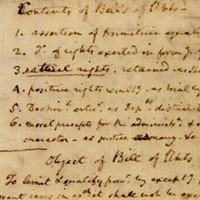 Contents of Bill of Rhts.
1. assertion of primitive equality
2. Do. of rights exerted in form
3. natural rights. retained as
4. positive rights result
5. Doctrin. artic. as Depts distinct
6. moral precepts for the administr. &
character - as justice œconomy. &c
Object of Bill of Rhts
To limit & qualify powr. by except
cases in wch. it shall not be